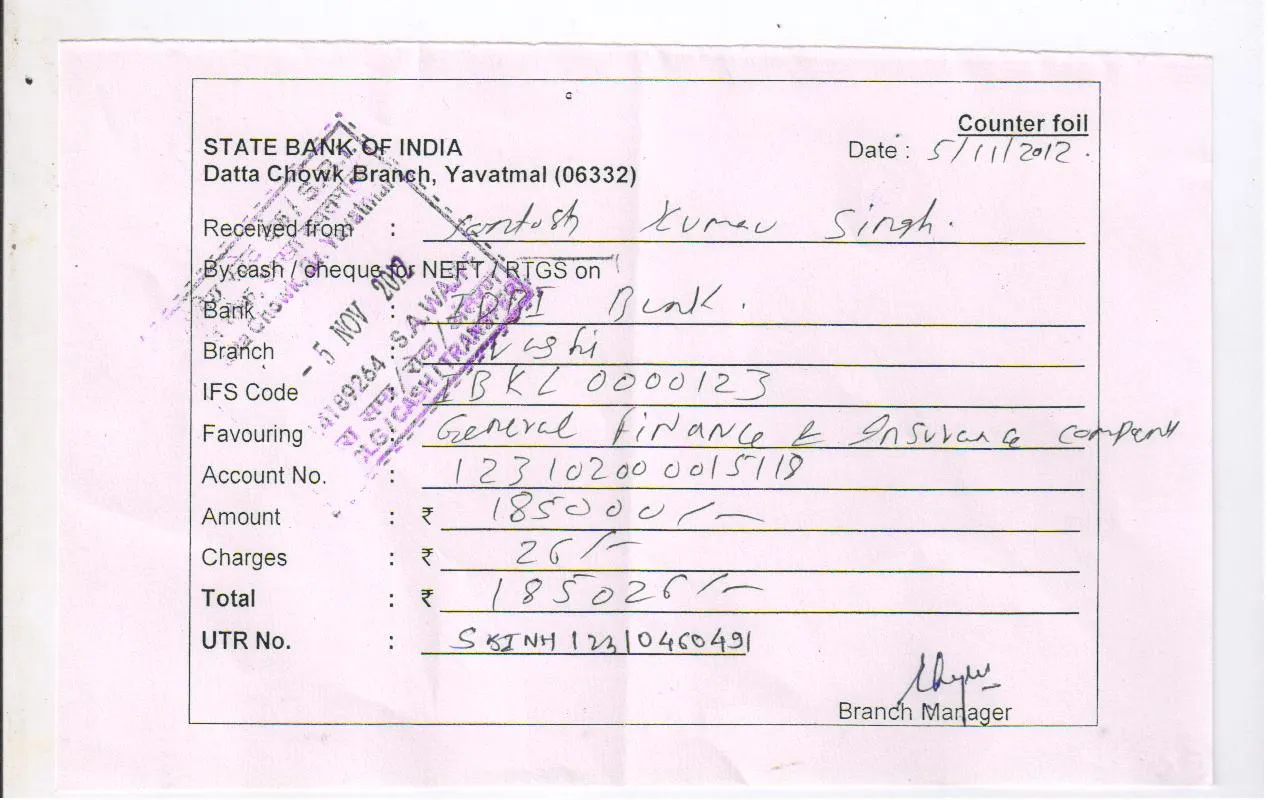 Counter foil
STATE BANK OF INDIA
Date : 5/11/2012.
Datta Chowk Branch, Yavatmal (06332)
Received from : Santosh Kumar Singh.
By cash / cheque for NEFT / RTGS on
Bank : IDBI Bank.
Branch : Vashi
IFS Code : IBKL 0000123
Favouring : General Finance & Insurance company
Account No. : 12310200 0015118
Amount : ₹ 185000/-
Charges : ₹ 26/-
Total : ₹ 185026/-
UTR No. : SBINH12310460491
Branch Manager
- 5 NOV 2012
4189264 S.A.WAJ
CASH / TRANSFER